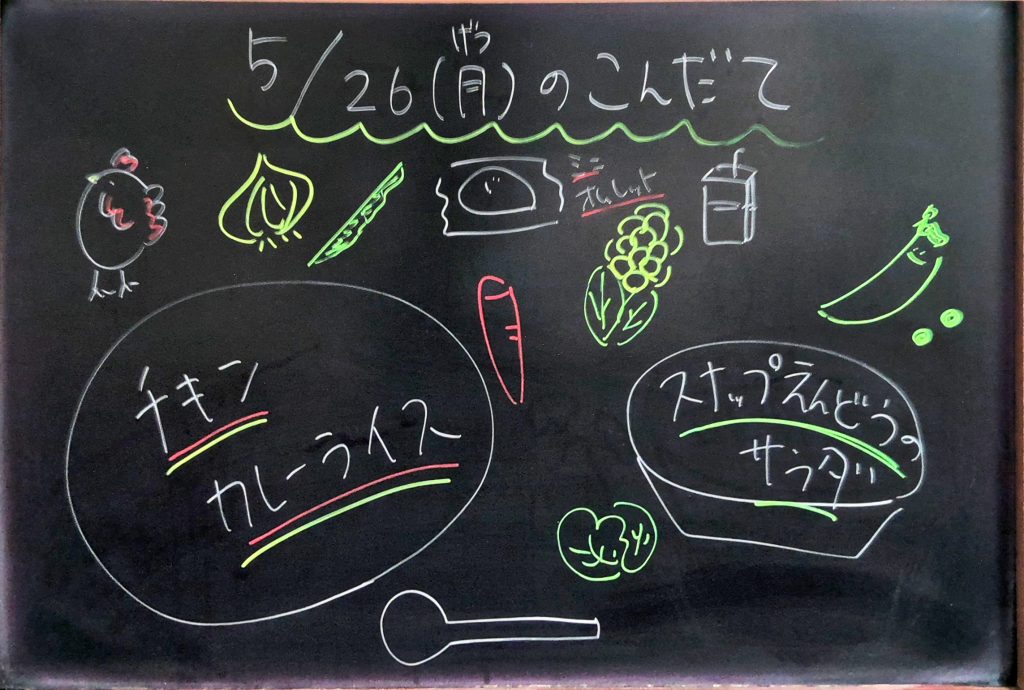 げつ
5/26(月)のこんだて
ミニ
オムレット
チキン
カレーライス
スナップえんどうの
サラダ